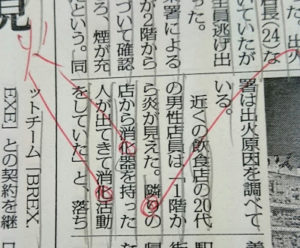 見
た。出火
店長（24な
ていたが
生員逃げ出
署による
が2階から
づいて確認
ろ、煙が充
という。同
署は出火原因を調べて
いる。
近くの飲食店の20代
の男性店員は「1階か
ら炎が見えた。隣りの
店から消化器を持った
人が出てきて消化活動
をしていた」と、落ち
ットチーム「BREX.
EXE」との契約を継